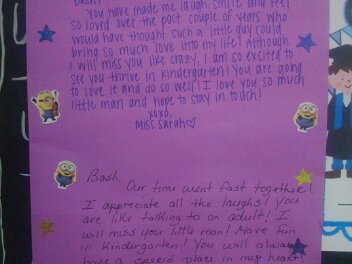 Bash!
You have made me laugh, smile and feel
so loved over the past couple of years. Who
would have thought such a little guy could
bring so much love into my life! Although
I will miss you like crazy, I am so excited to
see you thrive in kindergarten! You are going
to love it and do so well! I love you so much
little man and hope to stay in touch!
xoxo,
Miss Sarah♡
Bash,
Our time went fast together!
I appreciate all the laughs! You
are like talking to an adult! I
will miss you little man! Have fun
in Kindergarten! You will always
have a special place in my heart